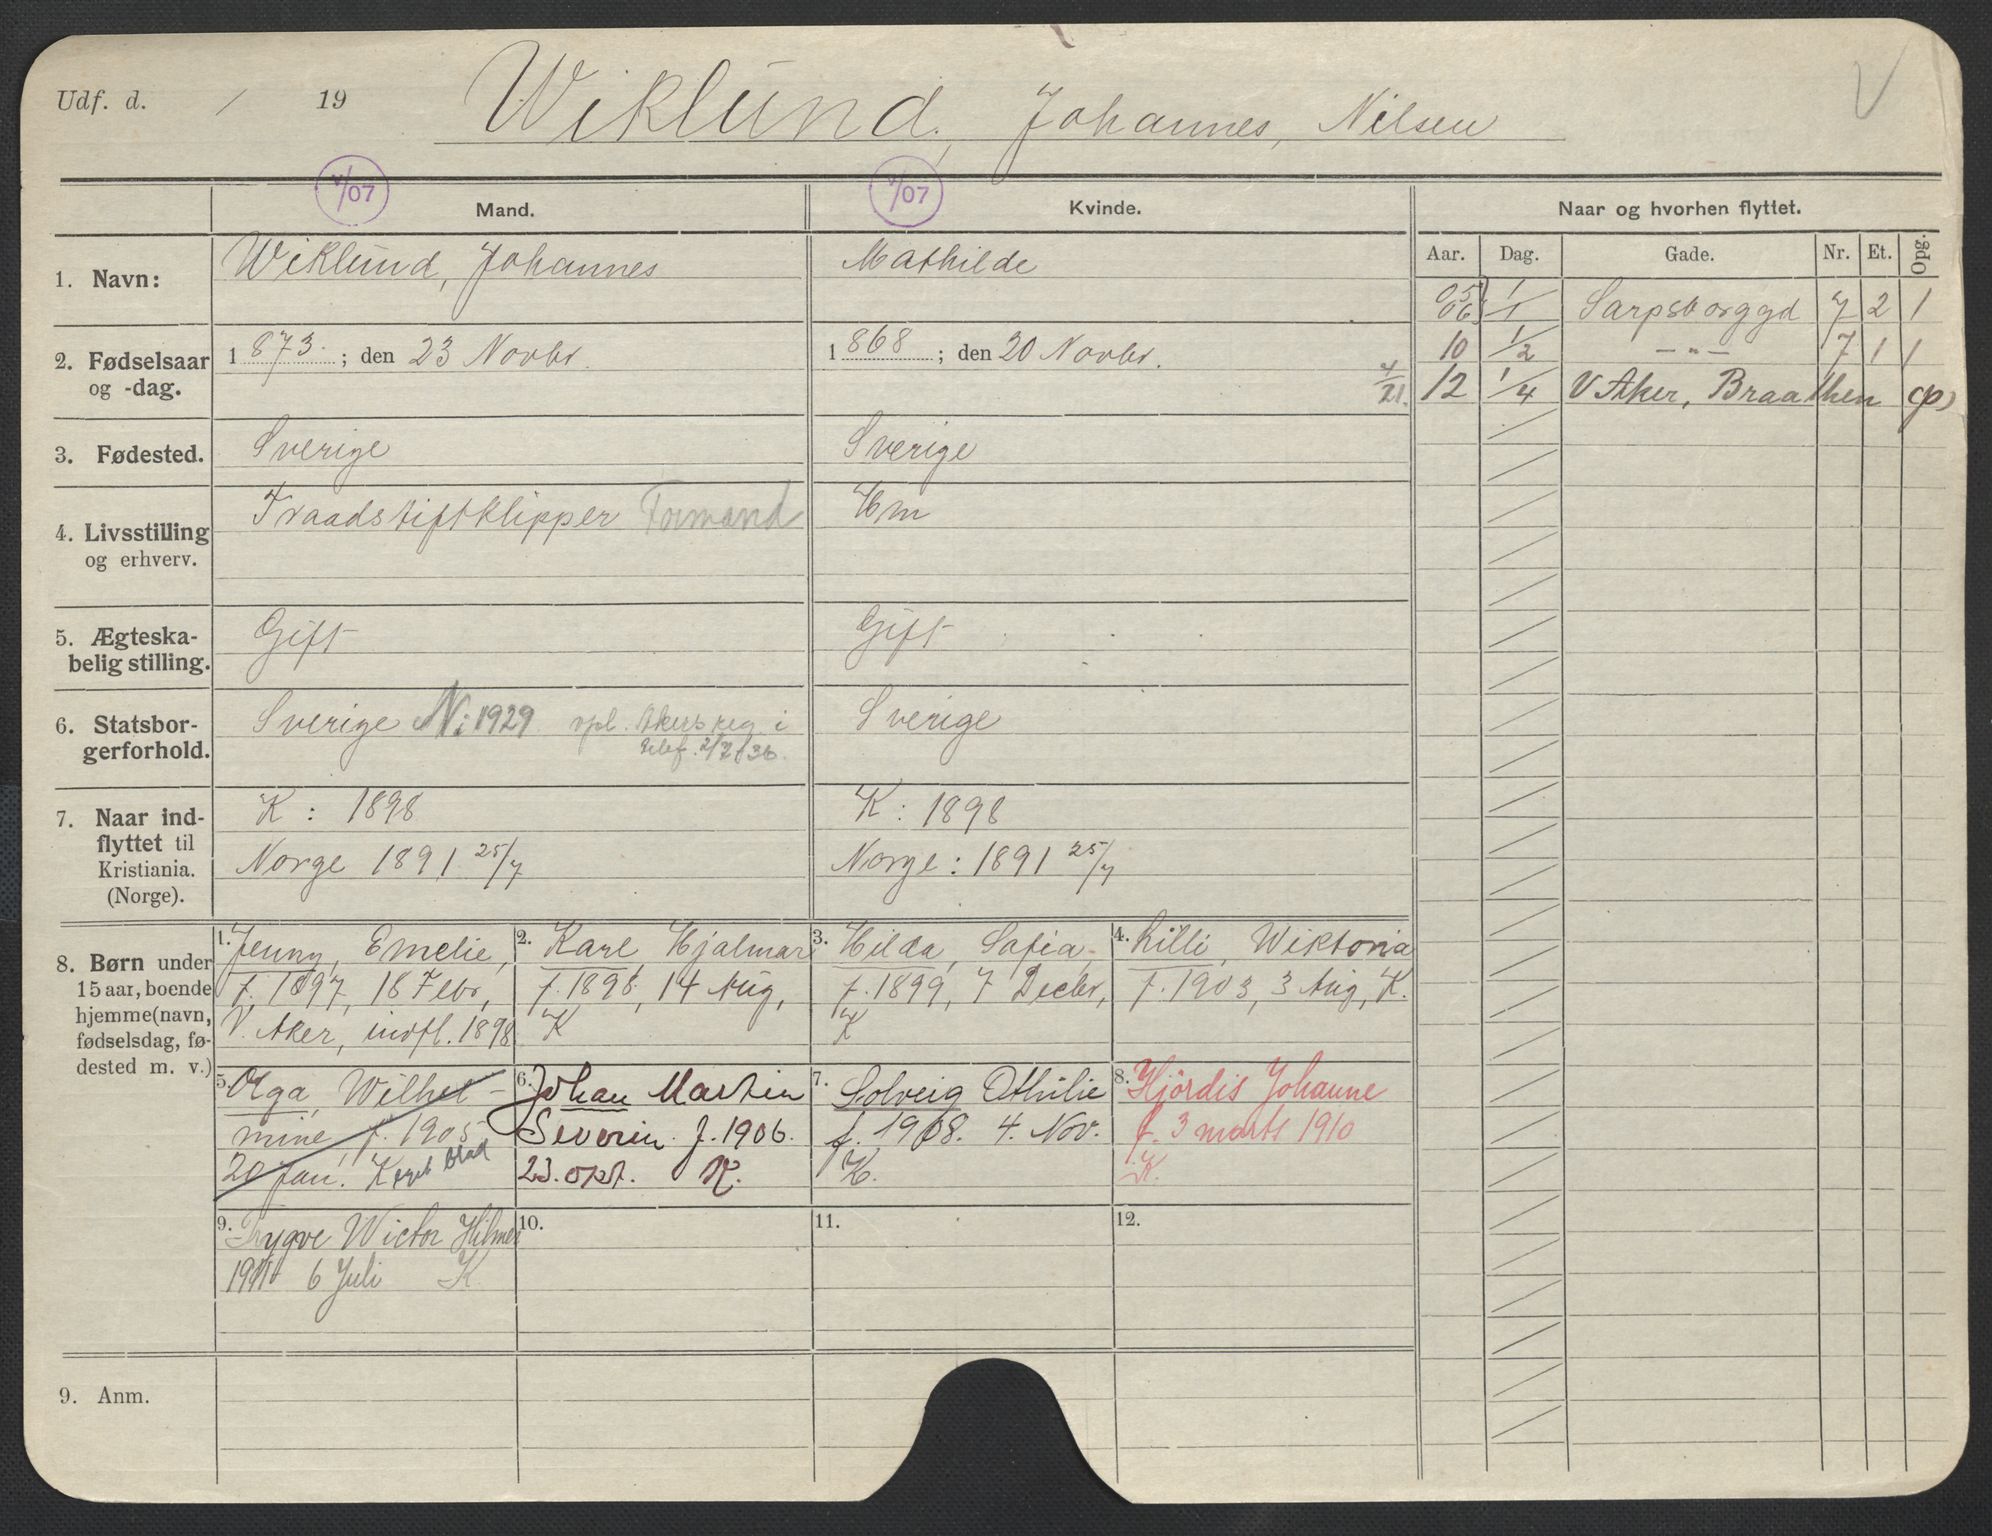 Udf. d. / 19 Wiklund, Johannes, Nilsen V
V/07 V/07
Mand. Kvinde. Naar og hvorhen flyttet.
Aar. Dag. Gade. Nr. Et. Opg.
1. Navn: Wiklund, Johannes Mathilde
05 1/1 Sarpsborggd 7 2 1
06
10 1/2 —"— 7 1 1
4/21. 12 1/4 V Aker, Braathen (p)
2. Fødselsaar 1 873 ; den 23 Novbr. 1 868 ; den 20 Novbr.
og -dag.
3. Fødested. Sverige Sverige
4. Livsstilling Traadstiftklipper Formand Hm
og erhverv.
5. Ægteska- Gift Gift
belig stilling.
6. Statsbor- Sverige N: 1929 opl. Akers reg i Sverige
gerforhold. telef. 2/7 36.
7. Naar ind- K: 1898 K: 1898
flyttet til Norge 1891 25/7 Norge: 1891 25/7
Kristiania.
(Norge).
8. Børn under
15 aar, boende
hjemme (navn,
fødselsdag, fø-
dested m. v.)
1. Jenny, Emelie,
f. 1897, 18 Febr,
V. Aker, indfl. 1898
2. Karl Hjalmar
f. 1898, 14 Aug,
K
3. Hilda, Sofia,
f. 1899, 7 Decbr,
K
4. Lilli, Wiktoria
f. 1903, 3 Aug, K.
5. Olga, Wilhel-
mine, f. 1905
20 Jan. K eget blad
6. Johan Martin
Severin. f. 1906.
23. okt. K.
7. Solveig Othilie
f. 1908. 4. Nov.
K.
8. Hjördis Johanne
f. 3 marts 1910
K.
9. Trygve Wictor Hilmer
1911 6 Juli K
10.
11.
12.
9. Anm.